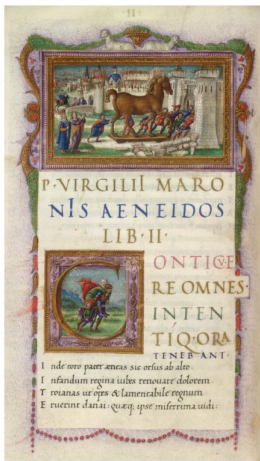 P·VIRGILII MARO
NIS AENEIDOS
LIB·II·
CONTICVE
RE OMNES·
INTEN
TIQ·ORA
TENEBANT·
Inde toro pater æneas sic orsus ab alto
Infandum regina iubes renouare dolorem
Troianas ut opes & lamentabile regnum
Eruerint danai·quæq; ipse miserrima uidi·